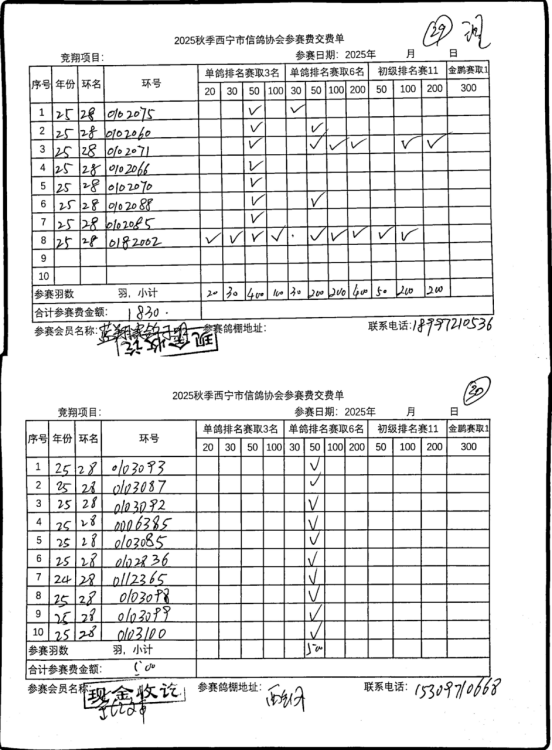 2025秋季西宁市信鸽协会参赛费交费单 29 现
竞翔项目: 参赛日期: 2025年 月 日
序号 年份 环名 环号 单鸽排名赛取3名 单鸽排名赛取6名 初级排名赛11 金鹏赛取1
20 30 50 100 30 50 100 200 50 100 200 300
1 25 28 0102075 ✓ ✓
2 25 28 0102060 ✓ ✓
3 25 28 0102071 ✓ ✓ ✓ ✓ ✓ ✓
4 25 28 0102066 ✓
5 25 28 0102070 ✓
6 25 28 0102088 ✓ ✓
7 25 28 0102085 ✓
8 25 28 0182002 ✓ ✓ ✓ ✓ · ✓ ✓ ✓ ✓ ✓
9
10
参赛羽数 羽, 小计 20 30 400 100 30 200 200 400 50 200 200
合计参赛费金额: 1830.
参赛会员名称: 现金收讫 参赛鸽棚地址: 联系电话: 18997210536
2025秋季西宁市信鸽协会参赛费交费单 30
竞翔项目: 参赛日期: 2025年 月 日
序号 年份 环名 环号 单鸽排名赛取3名 单鸽排名赛取6名 初级排名赛11 金鹏赛取1
20 30 50 100 30 50 100 200 50 100 200 300
1 25 28 0103093 ✓
2 25 28 0103087 ✓
3 25 28 0103092 ✓
4 25 28 0006385 ✓
5 25 28 0103085 ✓
6 25 28 0102836 ✓
7 24 28 0112365 ✓
8 25 28 0103098 ✓
9 25 28 0103099 ✓
10 25 28 0103100 ✓
参赛羽数 羽, 小计 500
合计参赛费金额: 500
参赛会员名称: 现金收讫 参赛鸽棚地址: 联系电话: 15309710668